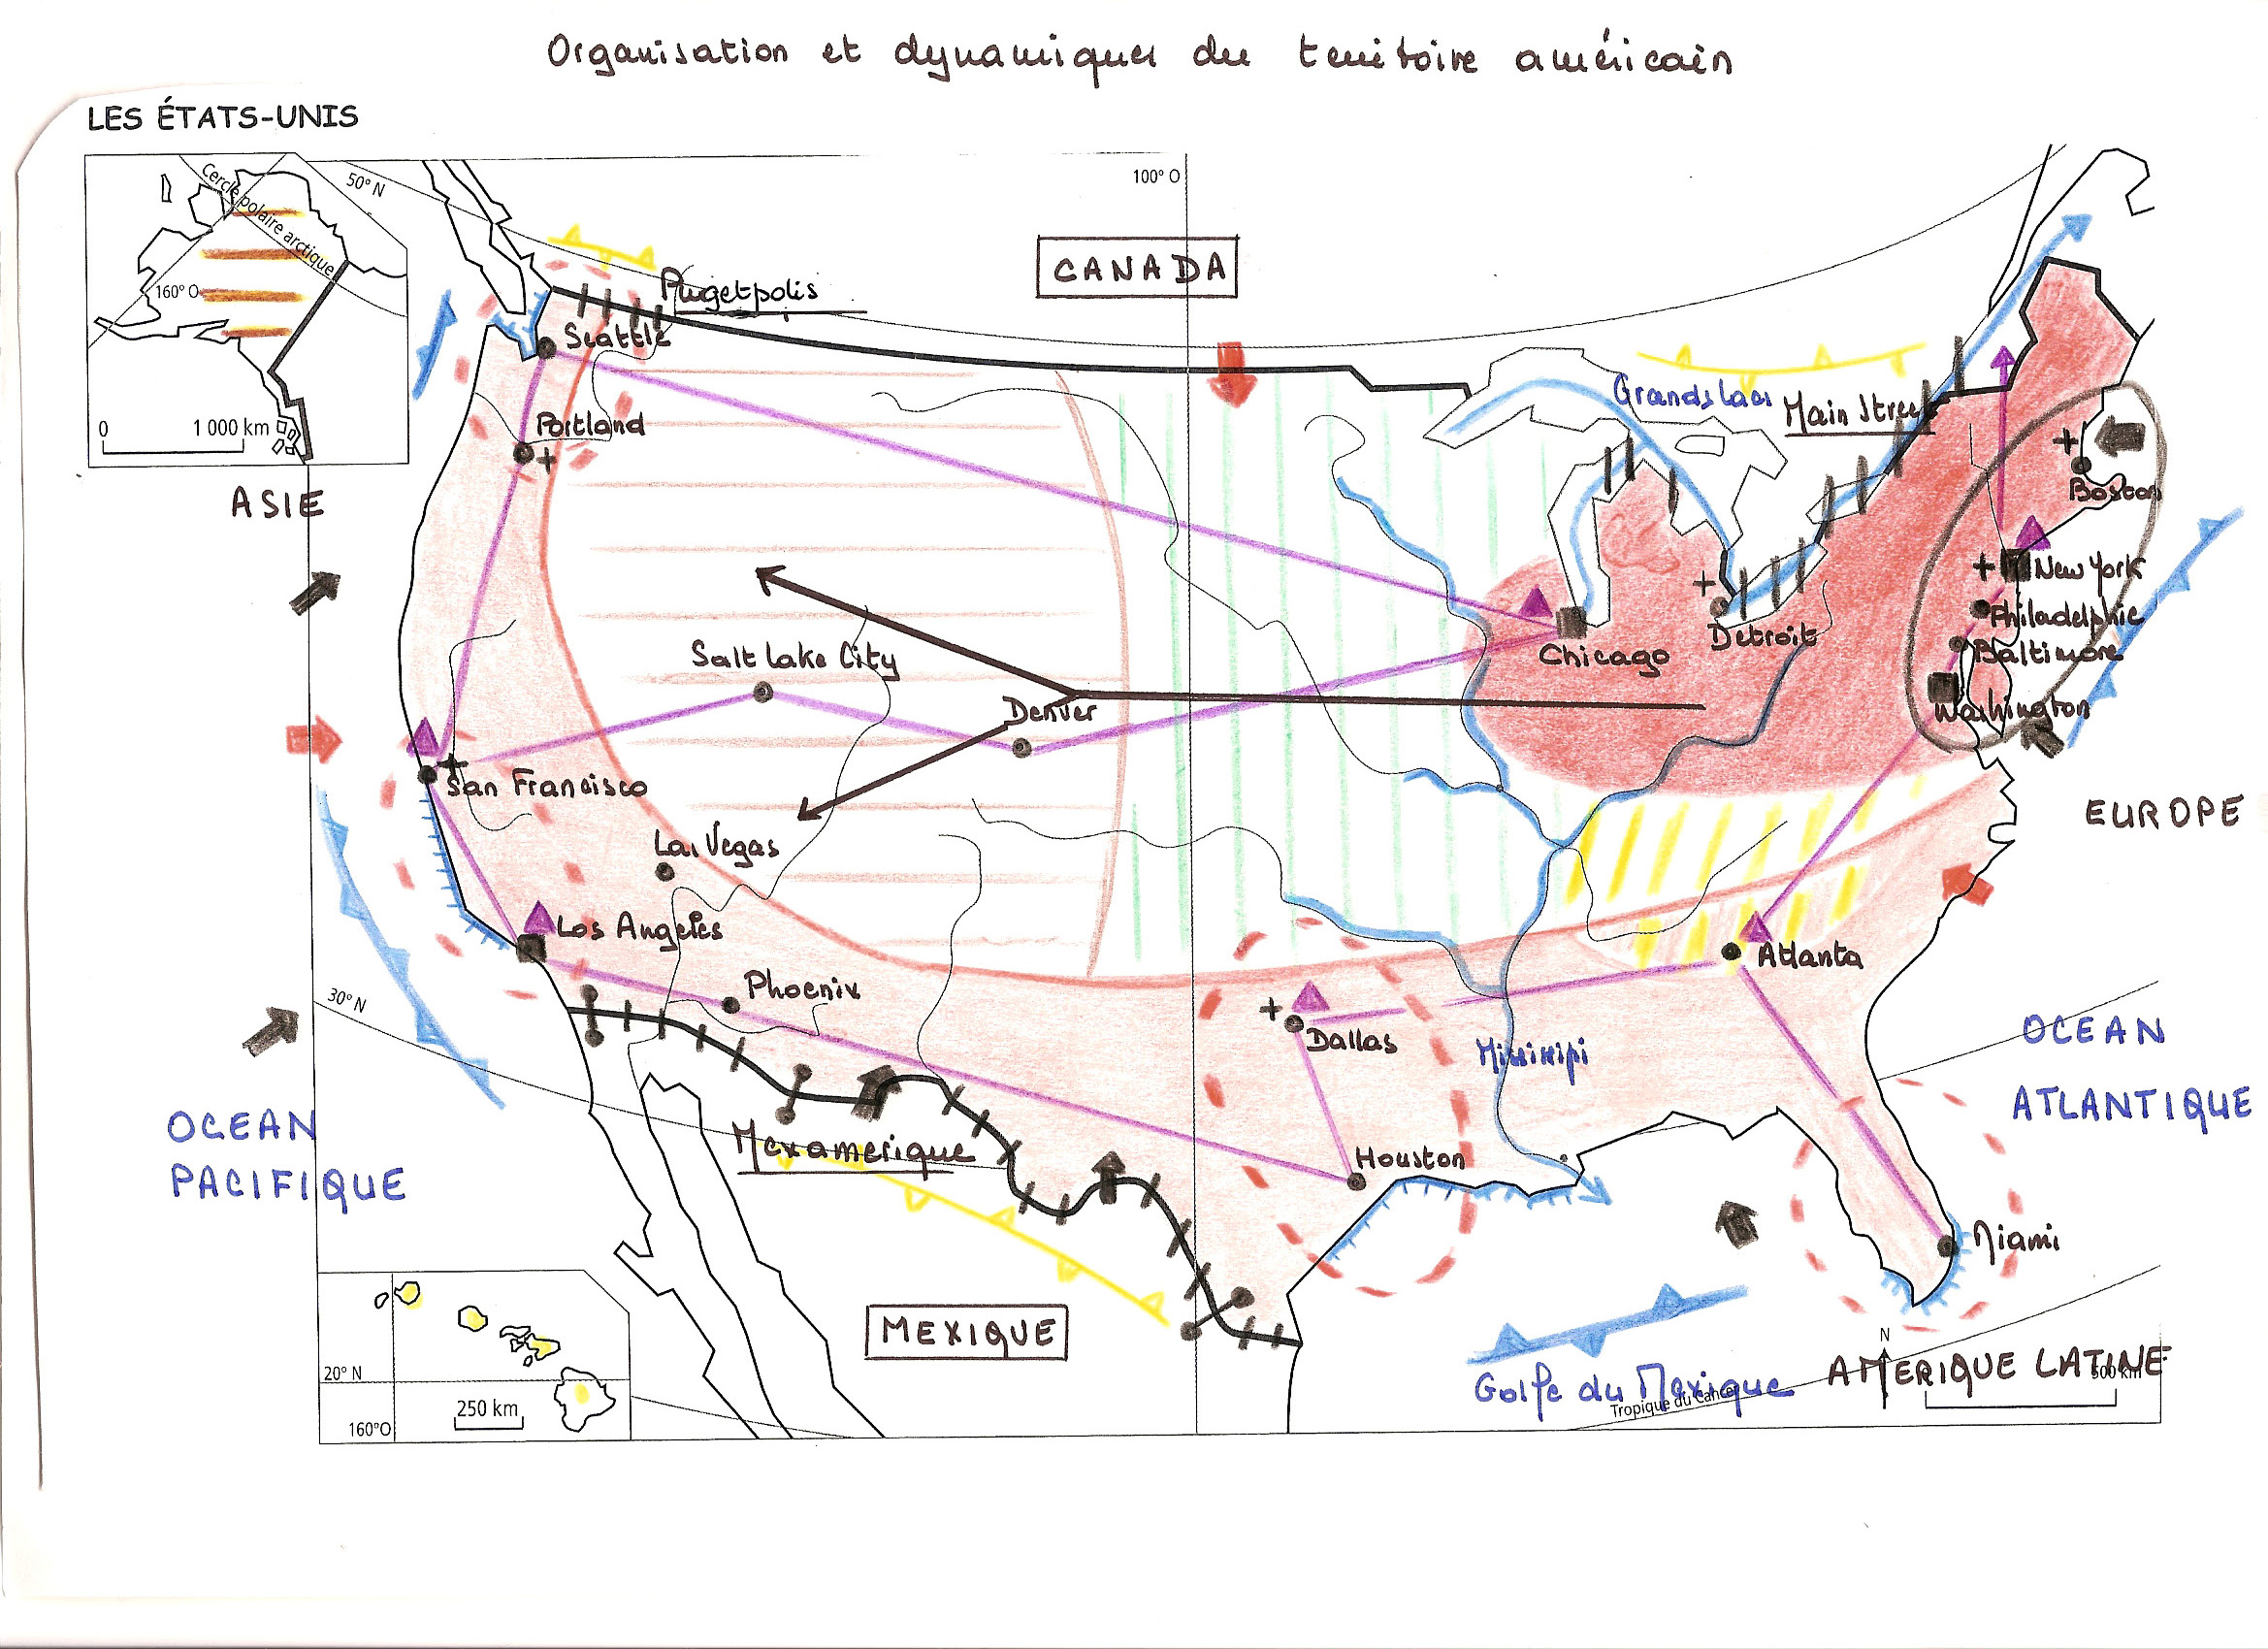 Organisation et dynamiques du territoire américain
LES ÉTATS-UNIS
Cercle polaire arctique
50° N
100° O
160° O
0 1 000 km
CANADA
Pugetpolis
Seattle
Portland
Grands lacs
Main Street
ASIE
Boston
New York
Philadelphie
Baltimore
Washington
Detroit
Chicago
Salt Lake City
Denver
San Francisco
EUROPE
Las Vegas
Los Angeles
Atlanta
Phoenix
30° N
Dallas
Missisipi
OCEAN
ATLANTIQUE
OCEAN
PACIFIQUE
Mexamerique
Houston
Miami
MEXIQUE
N
AMERIQUE LATINE
500 km
Golfe du Mexique
Tropique du Cancer
20° N
250 km
160°O